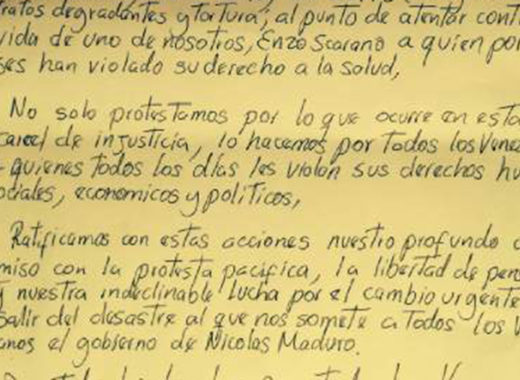 ratos degradantes y tortura, al punto de atentar cont
vida de uno de nosotros, Enzo Scarano a quien por
ses han violado su derecho a la salud,
No solo protestamos por lo que ocurre en esta
carcel de injusticia, lo hacemos por Todos los Vene
quienes Todos los días les violan sus derechos hu
ociales, economicos y políticos,
Ratificamos con estas acciones nuestro profundo c
miso con la protesta pacífica, la libertad de pen
y nuestra indeclinable lucha por el cambio urgente
salir del desastre al que nos somete a Todos los V
anos el gobierno de Nicolas Maduro.